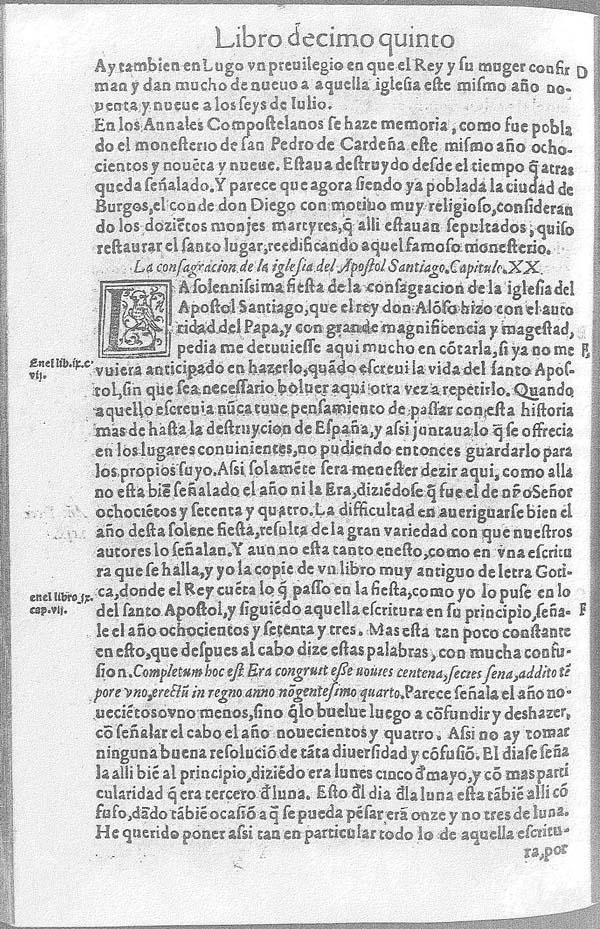 Libro decimo quinto
Ay tambien en Lugo vn preuilegio en que el Rey y su muger confir D
man y dan mucho de nueuo a aquella iglesia este mismo año no-
uenta y nueue a los seys de Iulio.
En los Annales Compostelanos se haze memoria, como fue pobla
do el monesterio de san Pedro de Cardeña este mismo año ocho-
cientos y nouẽta y nueue. Estaua destruydo desde el tiempo q̃ atras
queda señalado. Y parece que agora siendo ya poblada la ciudad de
Burgos, el conde don Diego con motiuo muy religioso, consideran
do los doziẽtos monjes martyres, q̃ alli estauan sepultados, quiso
restaurar el santo lugar, reedificando aquel famoso monesterio.
La consagracion de la iglesia del Apostol Santiago. Capitulo. XX.
LA solennissima fiesta de la consagracion de la iglesia del
Apostol Santiago, que el rey don Alõso hizo con el auto
ridad del Papa, y con grande magnificencia y magestad,
pedia me detuuiesse aqui mucho en cõtarla, si ya no me E
En el lib. ix. c.
vij.
vuiera anticipado en hazerlo, quãdo escreui la vida del santo Apos-
tol, sin que sea necessario boluer aqui otra vez a repetirlo. Quando
aquello escreuia nũca tuue pensamiento de passar con esta historia
mas de hasta la destruycion de España, y assi juntaua lo q̃ se offrecia
en los lugares conuinientes, no pudiendo entonces guardarlo para
los propios suyo. Assi solamẽte sera menester dezir aqui, como alla
no esta biẽ señalado el año ni la Era, diziẽdose q̃ fue el de nr̃o Señor
ochociẽtos y setenta y quatro. La difficultad en aueriguarse bien el
año desta solene fiesta, resulta de la gran variedad con que nuestros
autores lo señalan. Y aun no esta tanto enesto, como en vna escritu
ra que se halla, y yo la copie de vn libro muy antiguo de letra Goti-
en el libro. ix.
cap. vij.
ca, donde el Rey cuẽta lo q̃ passo en la fiesta, como yo lo puse en lo
del santo Apostol, y siguiẽdo aquella escritura en su principio, seña- F
le el año ochocientos y setenta y tres. Mas esta tan poco constante
en esto, que despues al cabo dize estas palabras, con mucha confu-
sion. Completum hoc est Era congruit esse noues centena, secies sena, addito tẽ
pore vno, erectũ in regno anno nõgentesimo quarto. Parece señala el año no-
ueciẽtos o vno menos, sino q̃ lo buelue luego a cõfundir y deshazer,
cõ señalar el cabo el año nouecientos y quatro. Assi no ay tomar
ninguna buena resoluciõ de tãta diuersidad y cõfusiõ. El dia se seña
la alli biẽ al principio, diziẽdo era lunes cinco đ mayo, y cõ mas parti
cularidad q̃ era tercero đ luna. Esto đl dia đla luna esta tãbiẽ alli cõ
fuso, dãdo tãbiẽ ocasiõ a q̃ se pueda pẽsar era onze y no tres de luna.
He querido poner assi tan en particular todo lo de aquella escritu-
ra, por